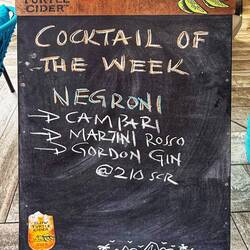 TURTLE
CIDER
COCKTAIL OF
THE WEEK
NEGRONI
→ CAMPARI
→ MARTINI ROSSO
→ GORDON GIN
@ 210 SCR
SLOW
TURTLE
CIDER